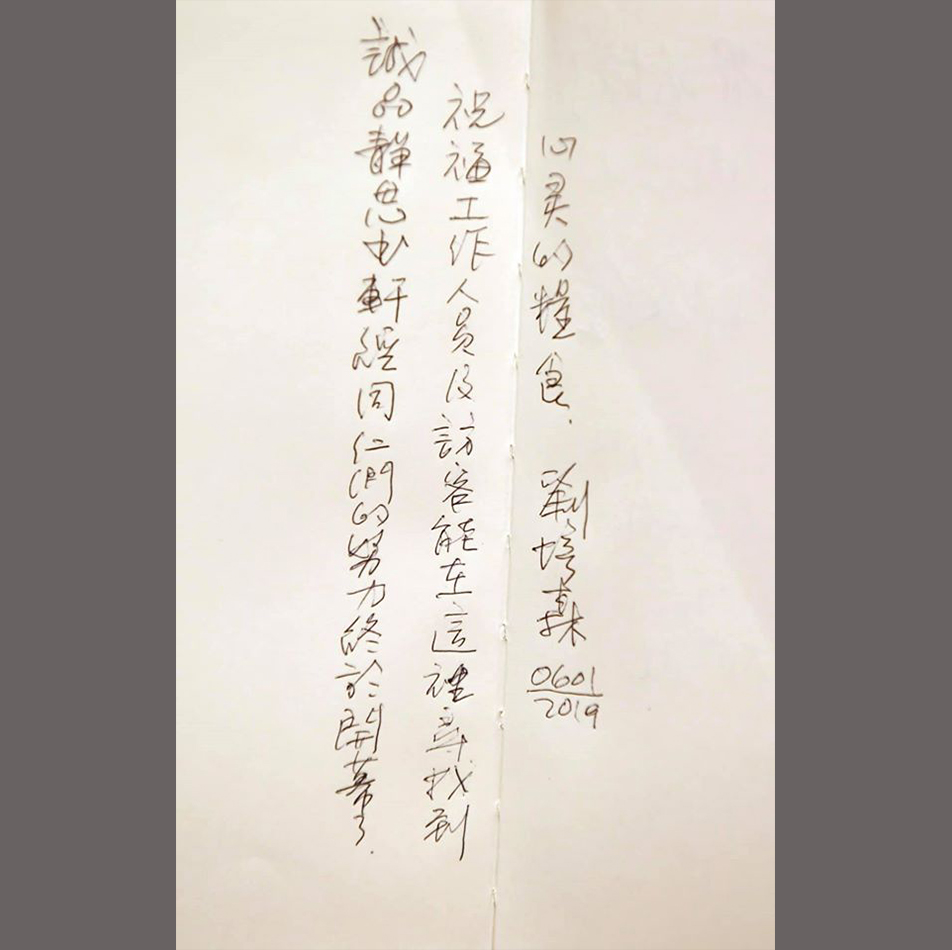 誠品靜思书軒經同仁們的努力終於開幕了.
祝福工作人员及訪客能在這裡尋找到
心灵的糧食. 劉培森
0601
2019